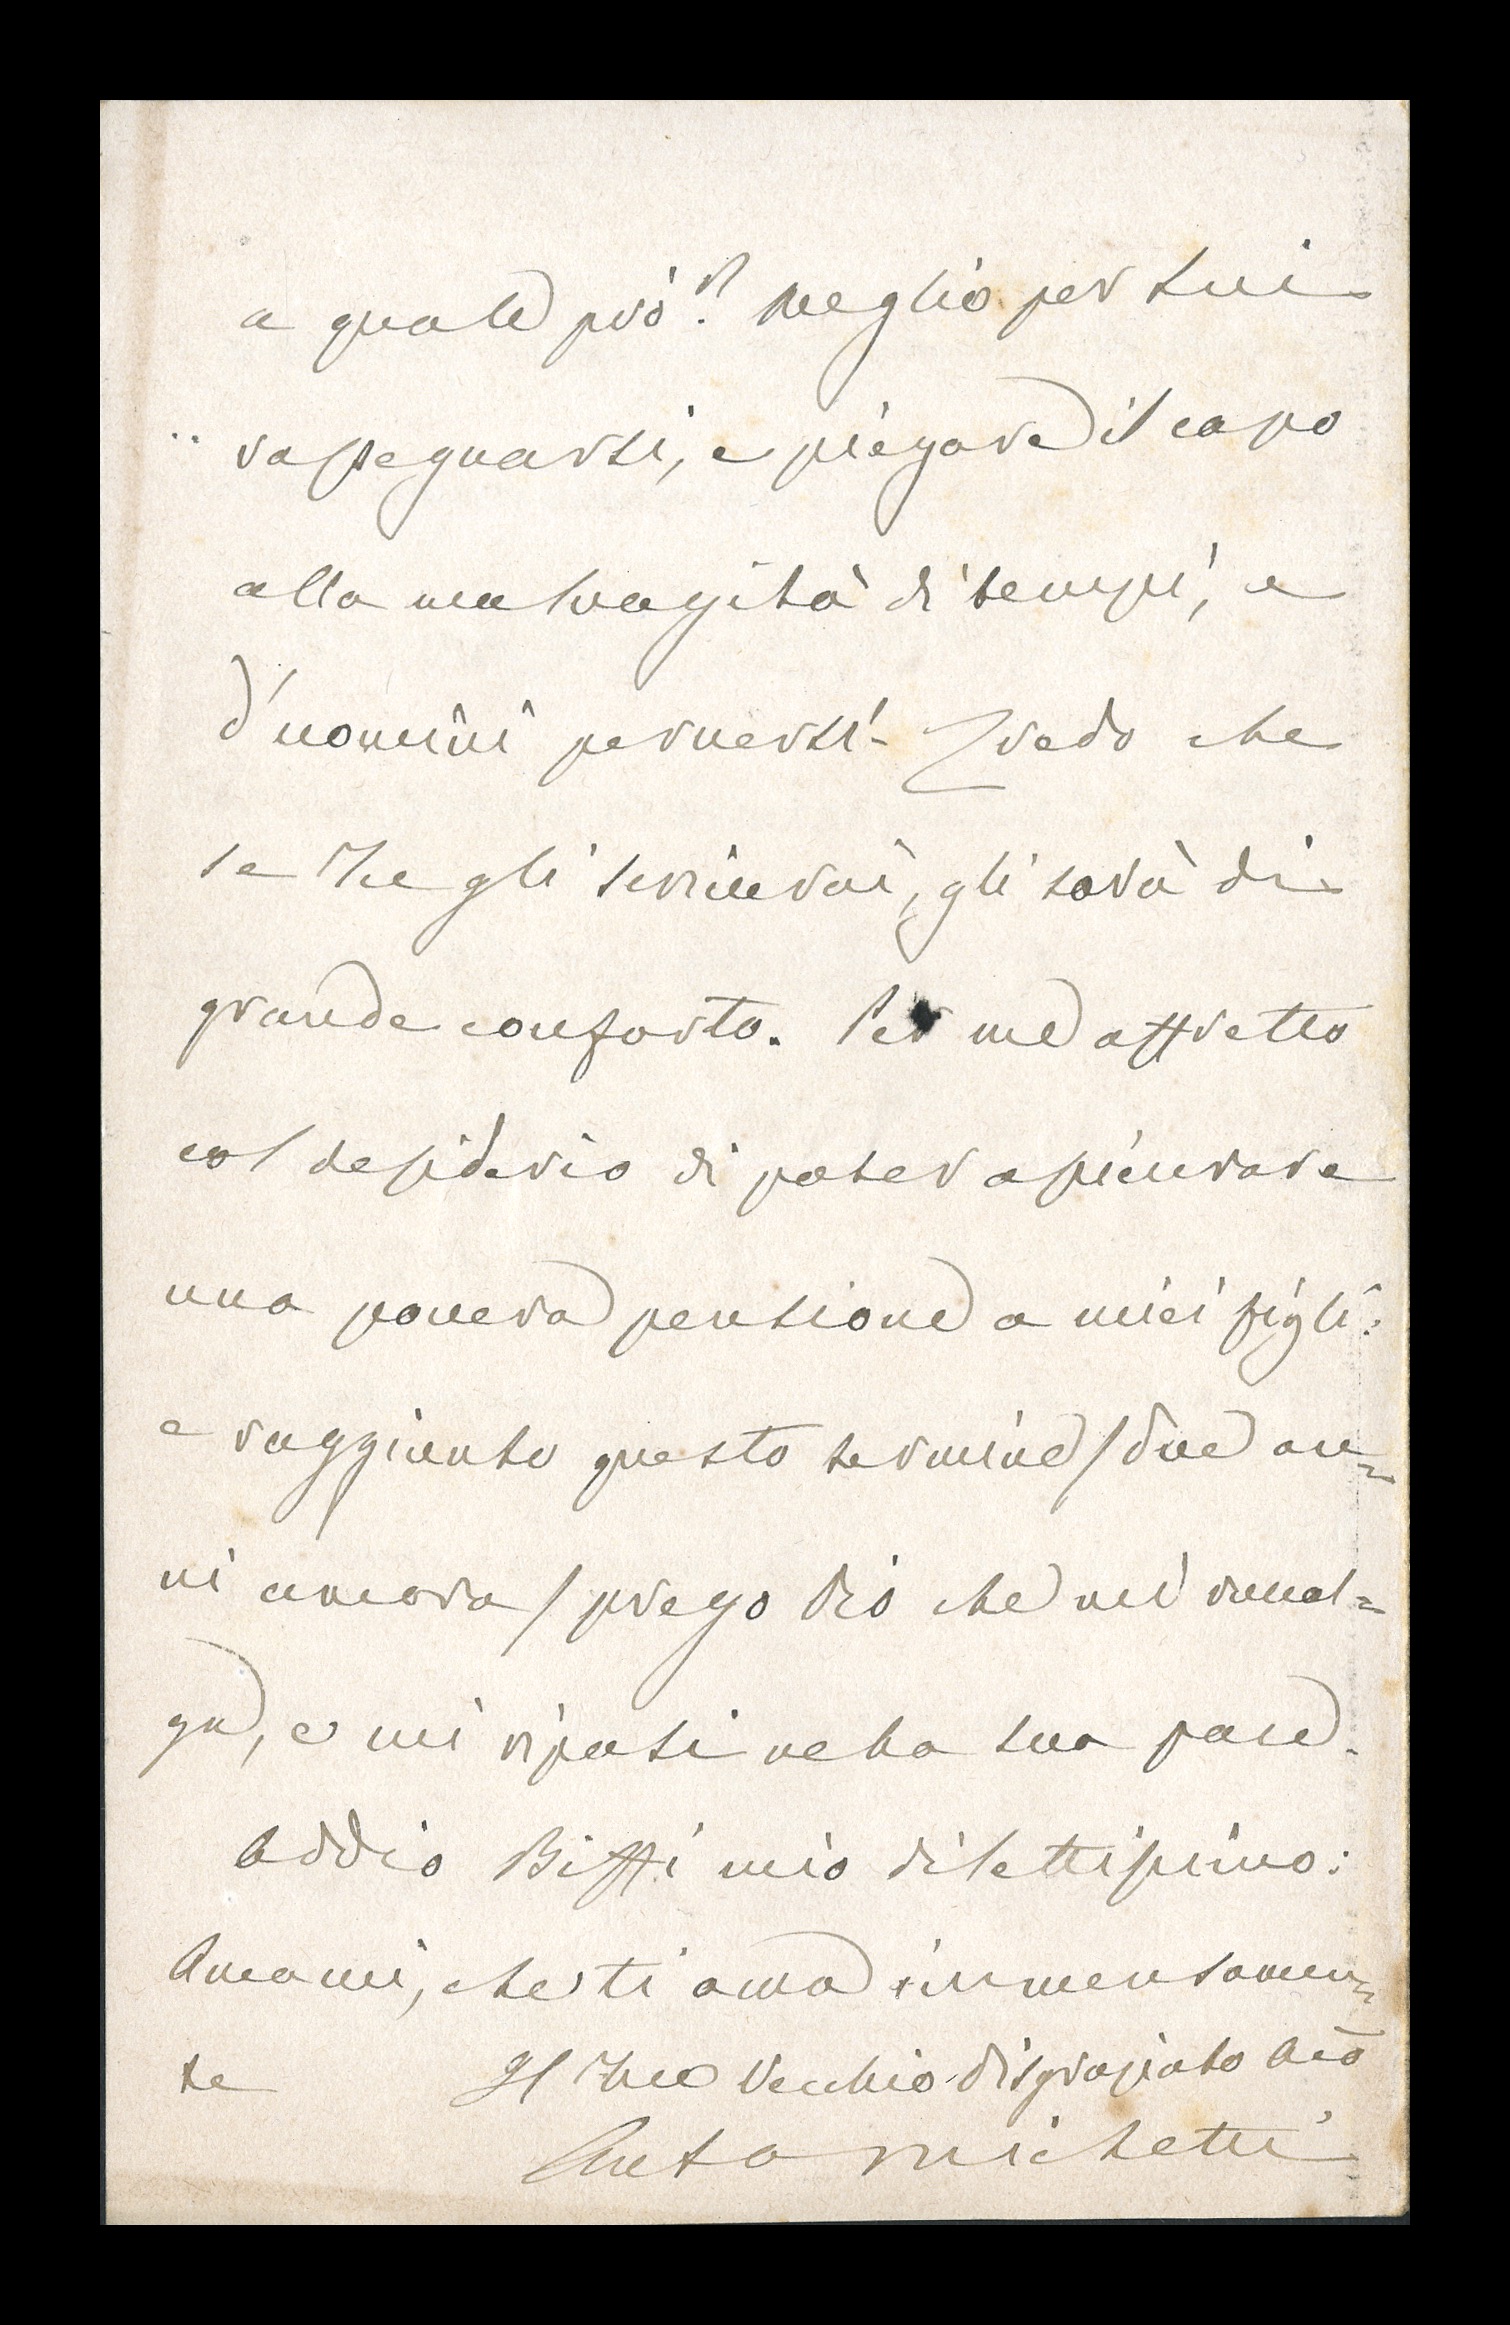 a quale prò? meglio per Lui
rassegnarsi, e piegare il capo
alla malvagità di tempi, e
d'uomini perversi - Credo che
se Tu gli scriverai, gli sarà di
grande conforto. Per me affretto
col desiderio di poter assicurare
una povera pensione a miei figli:
e raggiunto questo termine / due an=
ni ancora / prego Dio che mi
ga, e mi riposi nella sua pace.
Addio Biffi mio dilettissimo:
Amami, che ti ama immensamen=
te Il Tuo Vecchio disgraziato
Michetti